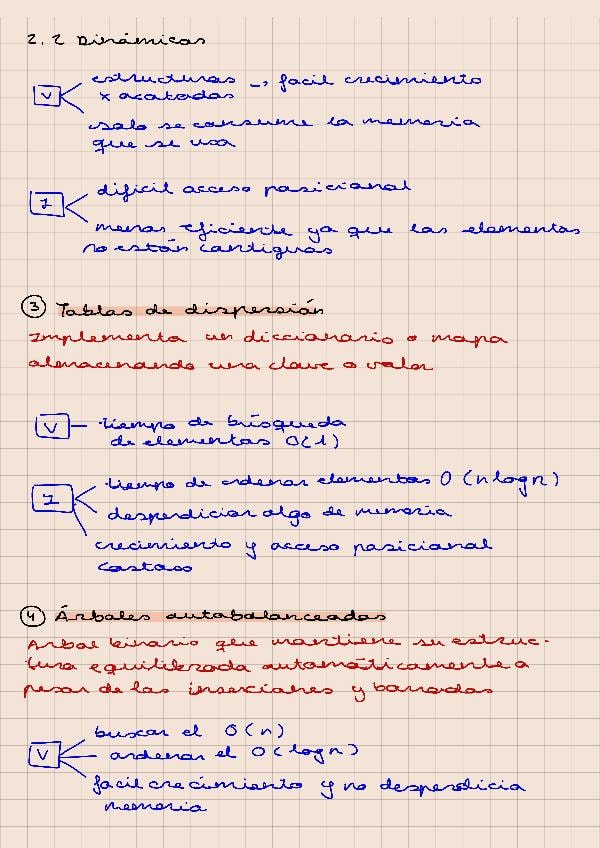 2.2 Dinámicas
estructuras → facil crecimiento
V
x acotadas
solo se consume la memoria
que se usa
dificil acceso posicional
I
menos eficiente ya que los elementos
no están contiguos
③ Tablas de dispersión
Implementa un diccionario o mapa
almacenando una clave o valor
V tiempo de búsqueda
de elementos O(1)
tiempo de ordenar elementos O(nlogn)
I
desperdiciar algo de memoria
crecimiento y acceso posicional
costoso
④ Árboles autobalanceados
Arbol binario que mantiene su estruc-
tura equilibrada automáticamente a
pesar de las inserciones y borrados
buscar el O(n)
V ordenar el O(logn)
facil crecimiento y no desperdicia
memoria